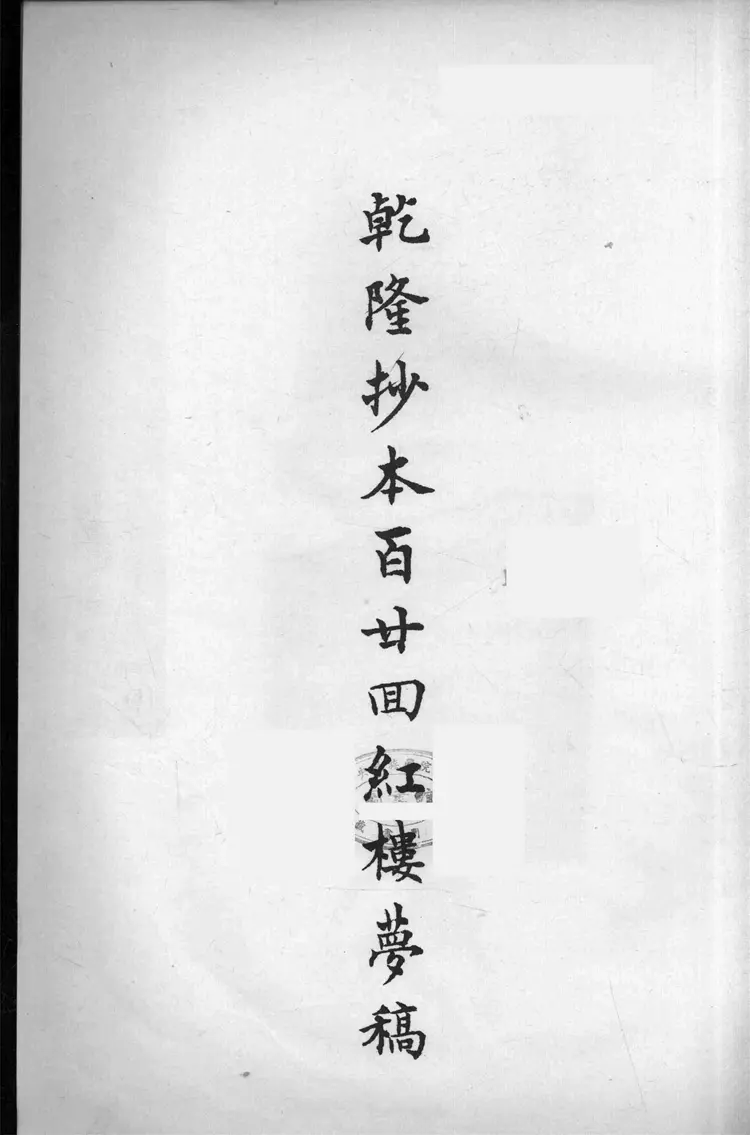 乾隆抄本百廿回紅樓夢稿